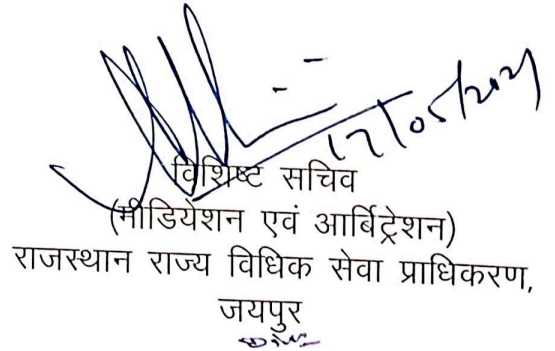 17/05/2021
विशिष्ट सचिव
(मीडियेशन एवं आर्बिट्रेशन)
राजस्थान राज्य विधिक सेवा प्राधिकरण,
जयपुर